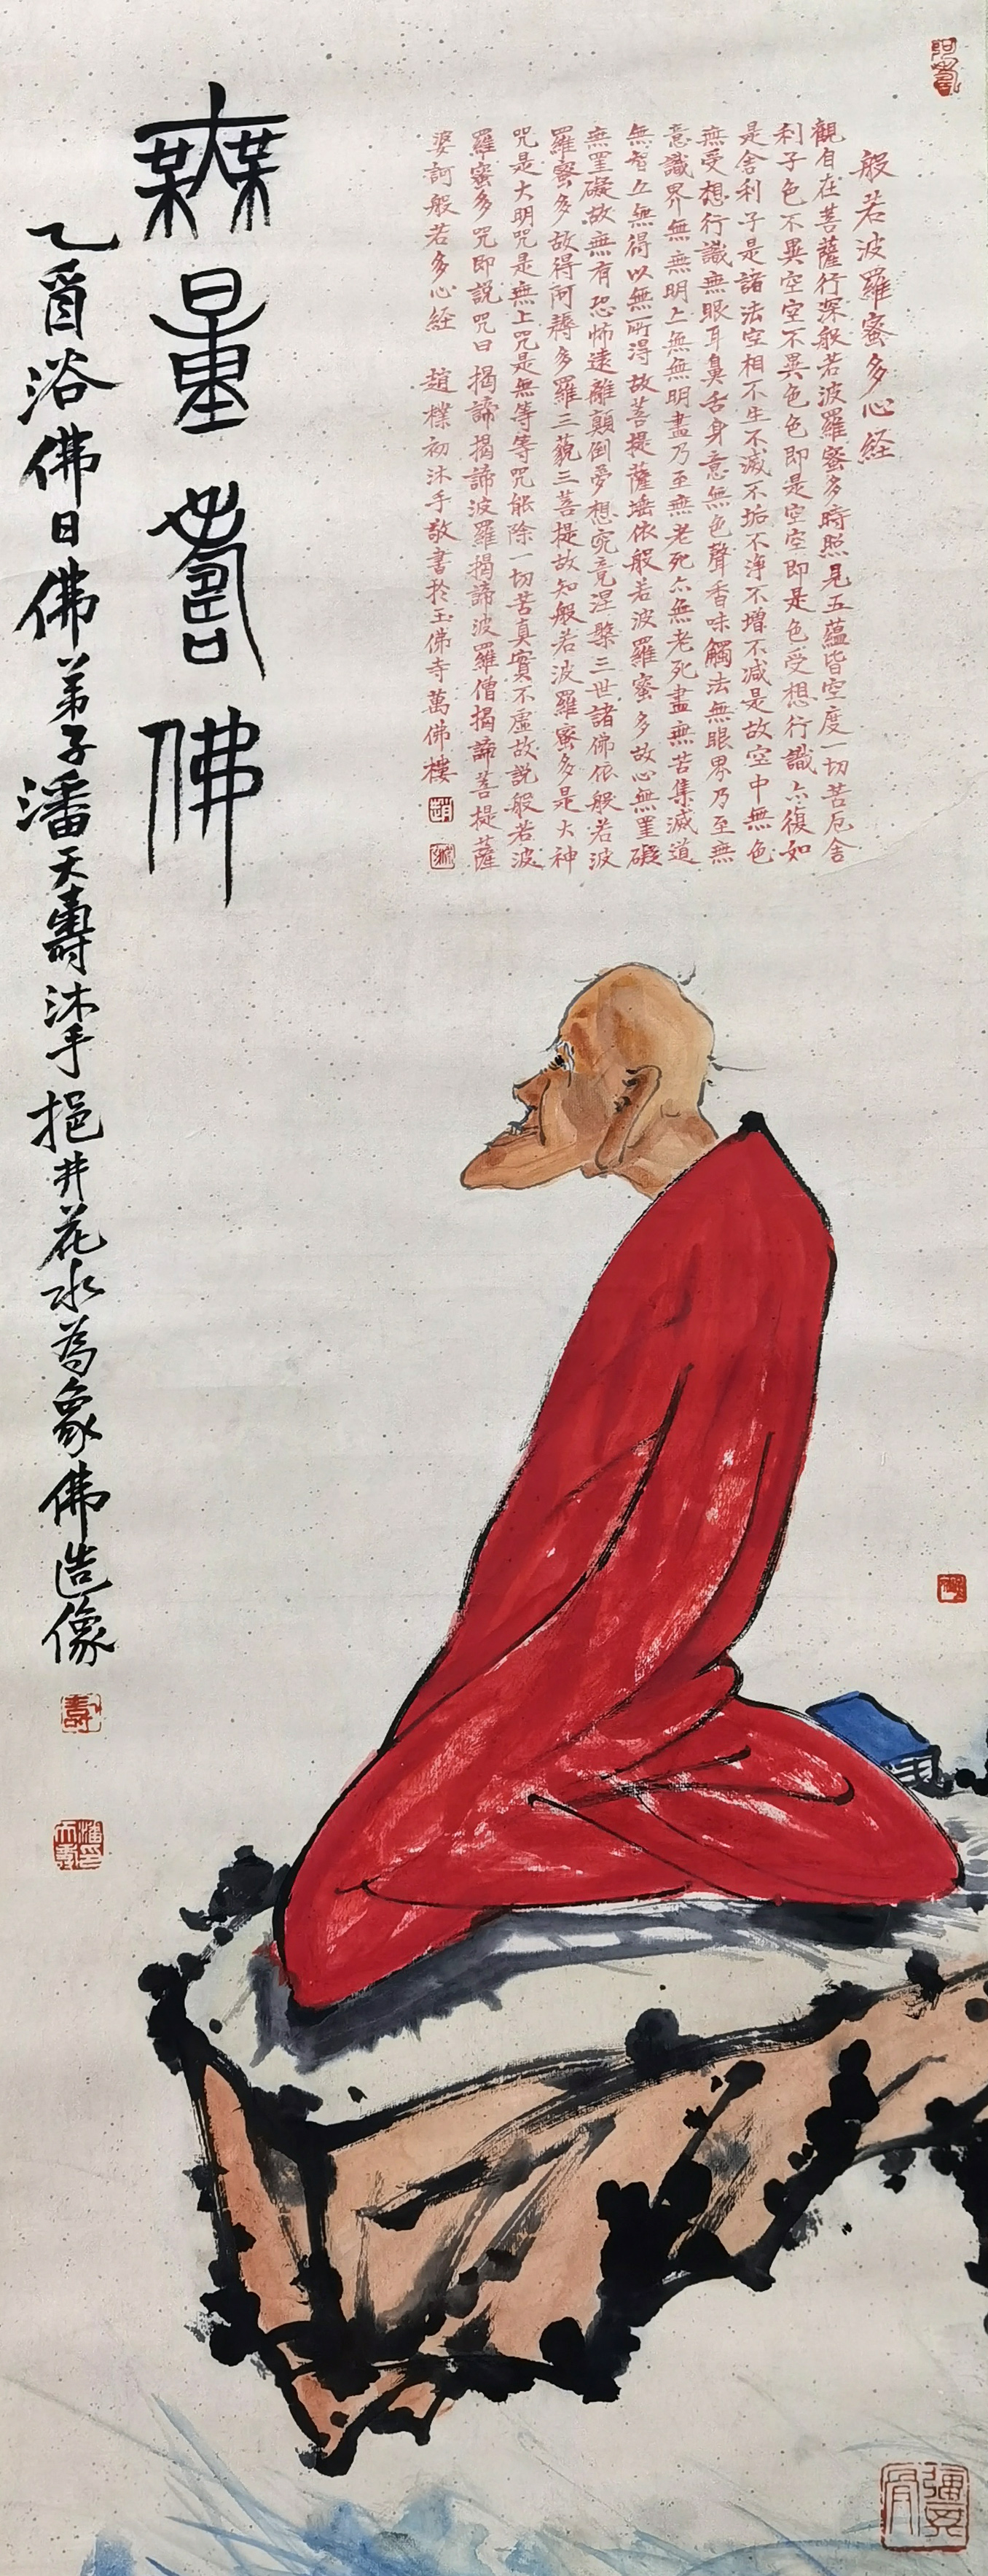 般若波羅蜜多心経
觀自在菩薩行深般若波羅蜜多時照見五蘊皆空度一切苦厄舍
利子色不異空空不異色色即是空空即是色受想行識亦復如
是舍利子是諸法空相不生不滅不垢不淨不增不減是故空中無色
無受想行識無眼耳鼻舌身意無色聲香味觸法無眼界乃至無
意識界無無明亦無無明盡乃至無老死亦無老死盡無苦集滅道
無智亦無得以無所得故菩提薩埵依般若波羅蜜多故心無罣礙
無罣礙故無有恐怖遠離顛倒夢想究竟涅槃三世諸佛依般若波
羅蜜多故得阿耨多羅三藐三菩提故知般若波羅蜜多是大神
咒是大明咒是無上咒是無等等咒能除一切苦真實不虛故説般若波
羅蜜多咒即説咒曰揭諦揭諦波羅揭諦波羅僧揭諦菩提薩
婆訶般若多心経 趙樸初沐手敬書於玉佛寺萬佛樓
無量壽佛
乙酉浴佛日佛弟子潘天壽沐手挹井花水為象佛造像
壽
潘天壽印
阿壽
彊其骨